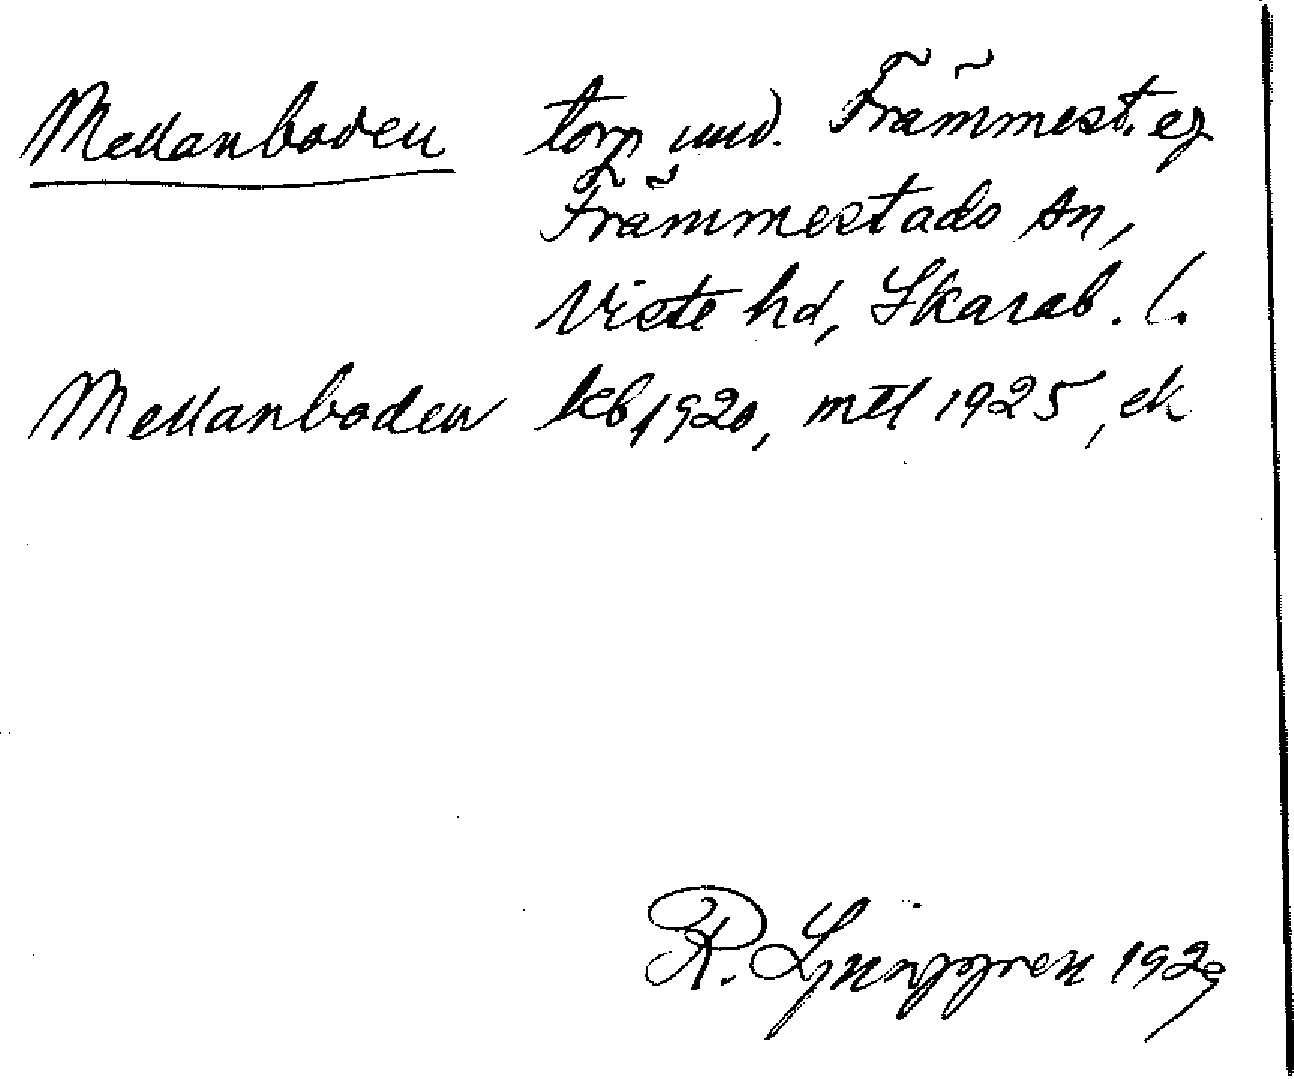 Mellanboden torp und. Främmest. eg
Främmestads sn,
Viste hd, Skarab. l.
Mellanboden kb 1920, mtl 1925, ek
R. Ljunggren 1929